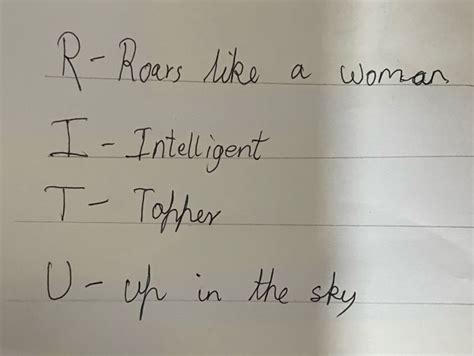 R - Roars like a woman
I - Intelligent
T - Topper
U - up in the sky